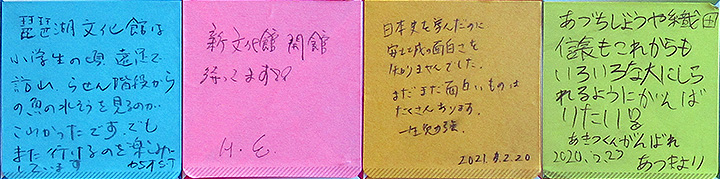 琵琶湖文化館は
小学生の頃 遠足で
訪れ、らせん階段から
の魚の水そうを見るのが
こわかったです。でも
また行けるのを楽しみに
しています
新文化館 開館
待ってます
H. E.
日本史を学んだのに
安土城の面白さを
知りませんでした。
まだまだ面白いものは
たくさんあります。
一生勉強。
2021.8.2.20
あづちじょうや織田
信長もこれからも
いろいろな人にしら
れるようにがんば
りたい
あきつくんがんばれ
2020.2.23
あつきより